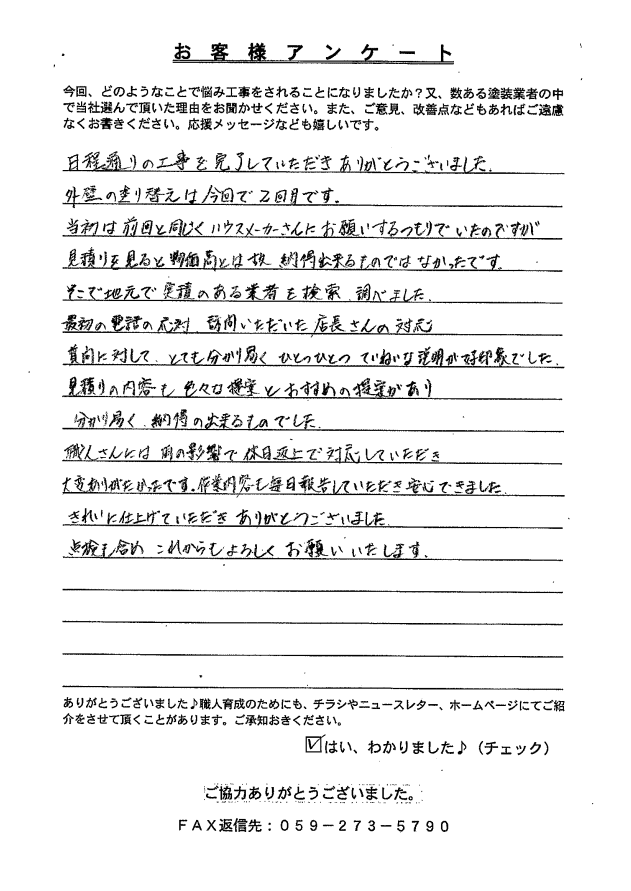 お客様アンケート
今回、どのようなことで悩み工事をされることになりましたか？又、数ある塗装業者の中
で当社選んで頂いた理由をお聞かせください。また、ご意見、改善点などもあればご遠慮
なくお書きください。応援メッセージなども嬉しいです。
日程通りの工事を完了していただきありがとうございました。
外壁の塗り替えは今回で2回目です。
当初は前回と同じくハウスメーカーさんにお願いするつもりでいたのですが
見積りを見ると物価高とは故 納得出来るものではなかったです。
そこで地元で実績のある業者を検索 調べました。
最初の電話の応対 訪問いただいた店長さんの対応
質問に対して、とても分かり易く ひとつひとつ ていねいな説明が好印象でした。
見積りの内容も色々な提案とおすすめの提案があり
分かり易く 納得の出来るものでした。
職人さんには雨の影響で休日返上で対応していただき
大変ありがたかったです。作業内容も毎日報告していただき安心できました。
きれいに仕上げていただきありがとうございました。
点検も含め これからもよろしく お願いいたします。
ありがとうございました♪職人育成のためにも、チラシやニュースレター、ホームページにてご紹
介をさせて頂くことがあります。ご承知おきください。
☑はい、わかりました♪（チェック）
ご協力ありがとうございました。
ＦＡＸ返信先：０５９－２７３－５７９０